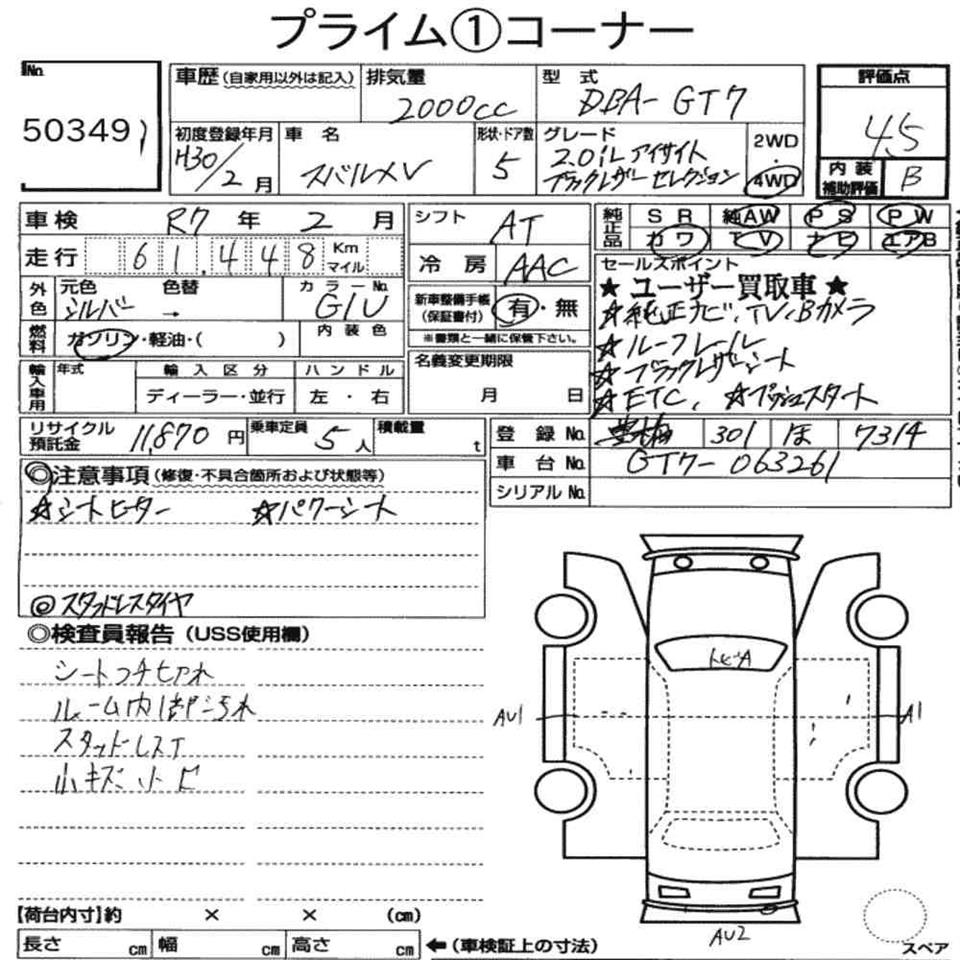 プライム①コーナー
No.
50349
車歴 (自家用以外は記入)
排気量
2000cc
型式
DBA- GT7
評価点
4.5
内装補助評価
B
初度登録年月
H30/2月
車名
スバルXV
形状・ドア数
5
グレード
2.0iL アイサイト
ブラックレザーセレクション
2WD
・
4WD
車検 R7年 2月
走行 61,448 Km マイル
シフト
AT
冷房
AAC
純正品
SR 純AW PS PW
カワ TV ナビ エアB
外色
元色 色替
シルバー →
カラーNo.
G1U
燃料
ガソリン・軽油・( )
内装色
新車整備手帳
(保証書付)
有・無
※書類と一緒に保管下さい。
セールスポイント
★ユーザー買取車★
☆純正ナビ、TV、Bカメラ
☆ルーフレール
☆ブラックレザーシート
☆ETC、 ☆プッシュスタート
輸入車用
年式
輸入区分
ディーラー・並行
ハンドル
左・右
名義変更期限
月 日
リサイクル預託金 11,870円
乗車定員 5人
積載量 t
登録No. 301 ほ 7314
車台No. GT7-063261
シリアルNo.
◎注意事項 (修復・不具合箇所および状態等)
☆シートヒーター ☆パワーシート
◎スタッドレスタイヤ
◎検査員報告 (USS使用欄)
シートコゲ ヒワれ
ルーム内1部汚れ
スタッドレスT
小キズ 小ヒ
トビA
AU1
A1
AU2
【荷台内寸】約 × × (cm)
長さ cm 幅 cm 高さ cm
←(車検証上の寸法)
スペア